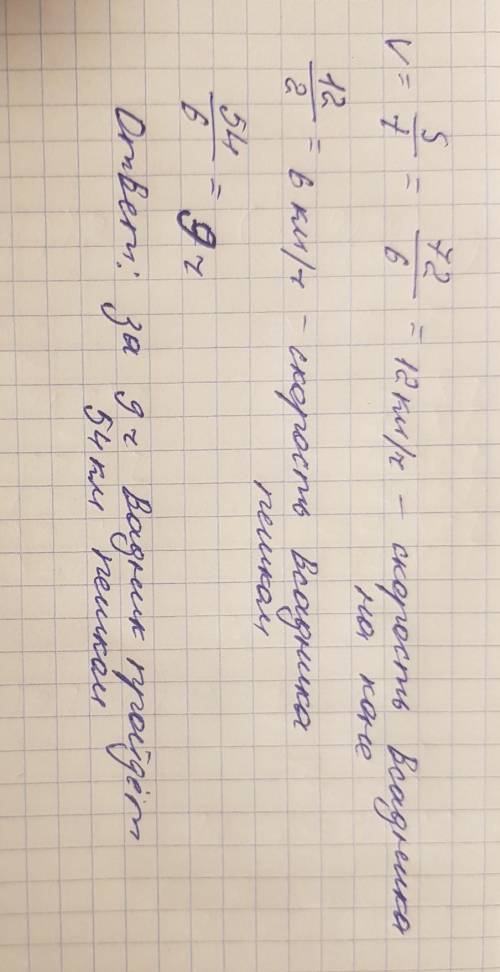 V = 5/7 = 72/6 = 12 км/ч – скорость Всадника
на коне
12/2 = 6 км/ч – скорость Всадника
пешком
54/6 = 9 ч
Ответ: за 9 ч Вадник пройдёт
54 км пешком